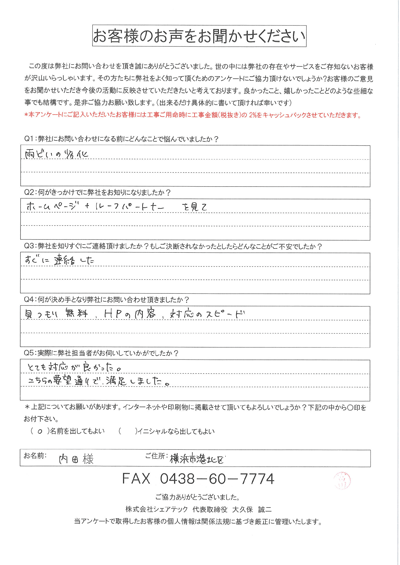 お客様のお声をお聞かせください
この度は弊社にお問い合わせを頂き誠にありがとうございました。世の中には弊社の存在やサービスをご存知ないお客様
が沢山いらっしゃいます。その方たちに弊社をよく知って頂くためのアンケートにご協力頂けないでしょうか?お客様のご意見
をお聞かせいただき今後の活動に反映させていただきたいと考えております。良かったこと、嬉しかったことどのような些細な
事でも結構です。是非ご協力お願い致します。(出来るだけ具体的に書いて頂ければ幸いです)
*本アンケートにご記入いただいたお客様には工事ご用命時に工事金額(税抜き)の 2%をキャッシュバックさせていただきます。
Q1:弊社にお問い合わせになる前にどんなことで悩んでいましたか?
雨どいの劣化
Q2:何がきっかけでに弊社をお知りになりましたか?
ホームページ + ルーフパートナー を見て
Q3:弊社を知りすぐにご連絡頂けましたか?もしご決断されなかったとしたらどんなことがご不安でしたか?
すぐに連絡した
Q4:何が決め手となり弊社にお問い合わせ頂きましたか?
見つもり無料、HPの内容、対応のスピード
Q5:実際に弊社担当者がお伺いしていかがでしたか?
とても対応が良かった。
こちらの要望通りで、満足しました。
*上記についてお願いがあります。インターネットや印刷物に掲載させて頂いてもよろしいでしょうか?下記の中から〇印を
お付け下さい。
( o )名前を出してもよい ( )イニシャルなら出してもよい
お名前: 内田 様 ご住所: 横浜市港北区
FAX 0438-60-7774
ご協力ありがとうございました。
株式会社シェアテック 代表取締役 大久保 誠二
当アンケートで取得したお客様の個人情報は関係法規に基づき厳正に管理いたします。